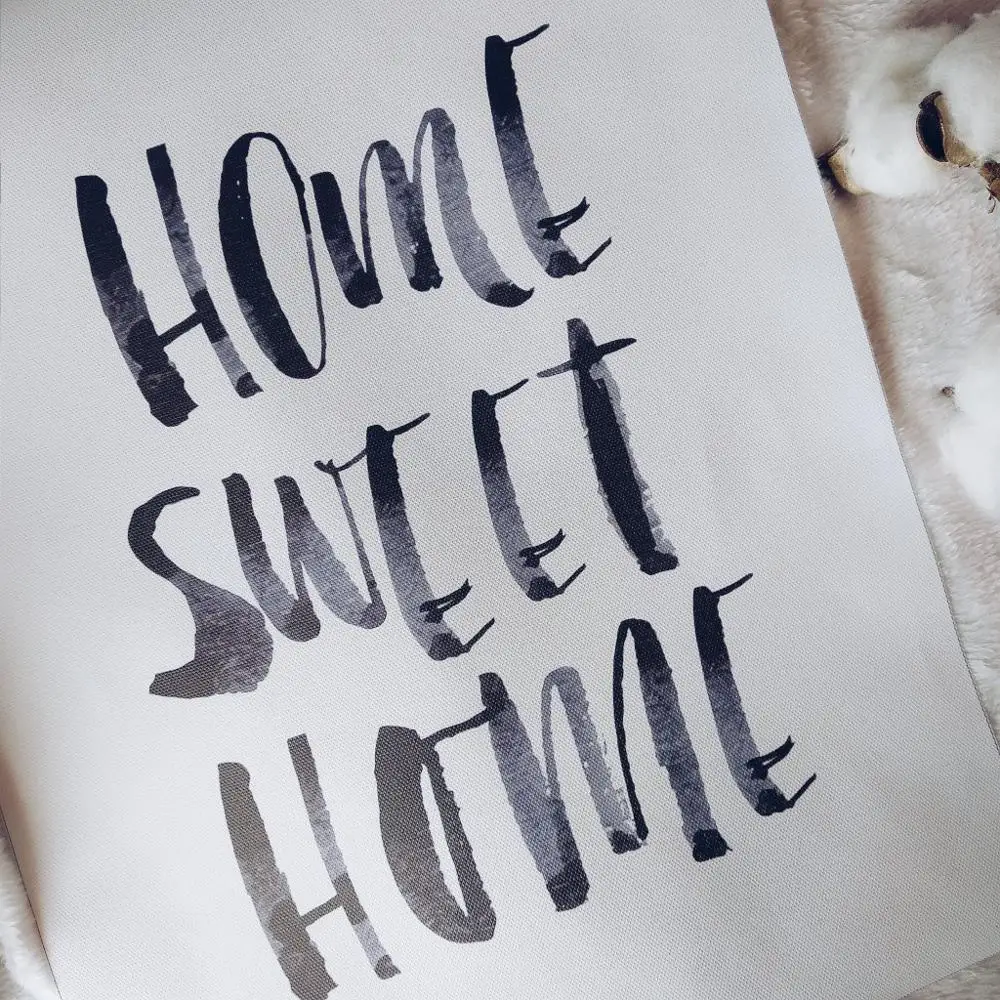 HOME
SWEET
HOME